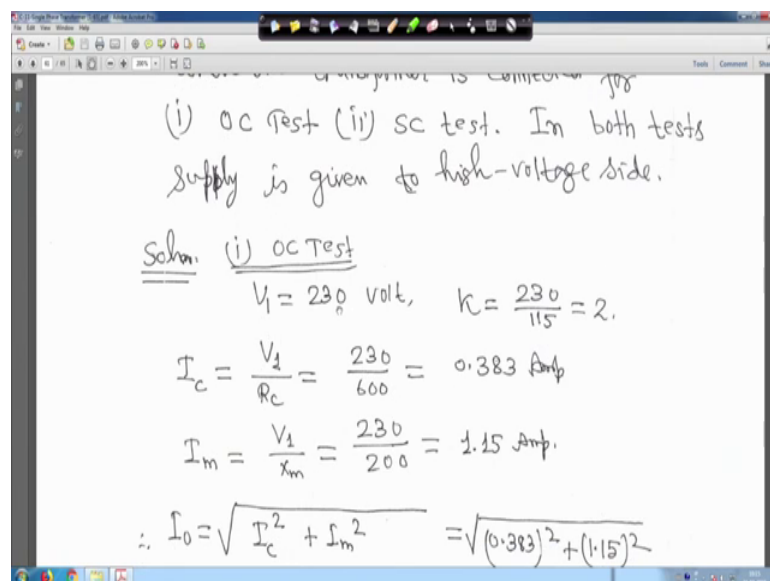 File Edit View Window Help
Create
Tools Comment
transformer is connected for
(i) OC Test (ii) SC test. In both tests
supply is given to high-voltage side.
Soln. (i) OC Test
V1 = 230 volt, K = 230/115 = 2.
Ic = V1/Rc = 230/600 = 0.383 Amp
Im = V1/xm = 230/200 = 1.15 Amp.
∴ I0 = √(Ic² + Im²) = √((0.383)² + (1.15)²)